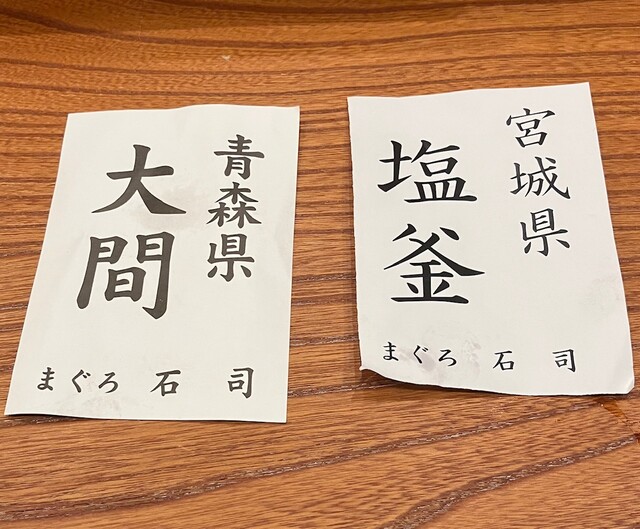 青森県
大間
まぐろ 石司
宮城県
塩釜
まぐろ 石司